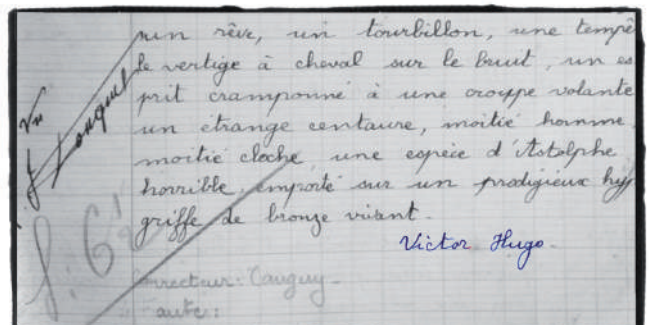 un rêve, un tourbillon, une tempê
le vertige à cheval sur le bruit, un es
prit cramponné à une croupe volante
un étrange centaure, moitié homme,
moitié cloche, une espèce d'Astolphe
horrible, emporté sur un prodigieux hyp
griffe de bronze vivant.
Victor Hugo.
Vu
Correcteur: Tanguy
Faute: